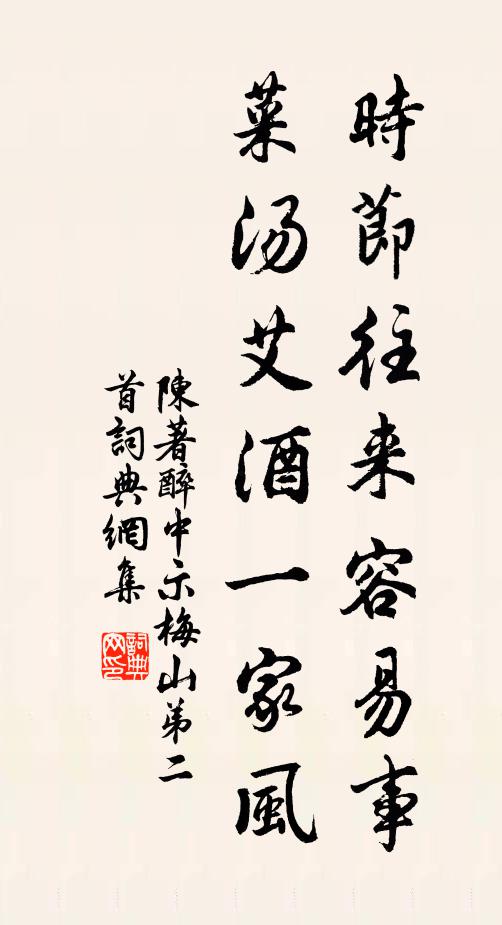 時節往来容易事
菜湯艾酒一家風
陳著醉中示梅山弟二
首詞典網集
詞典
网印